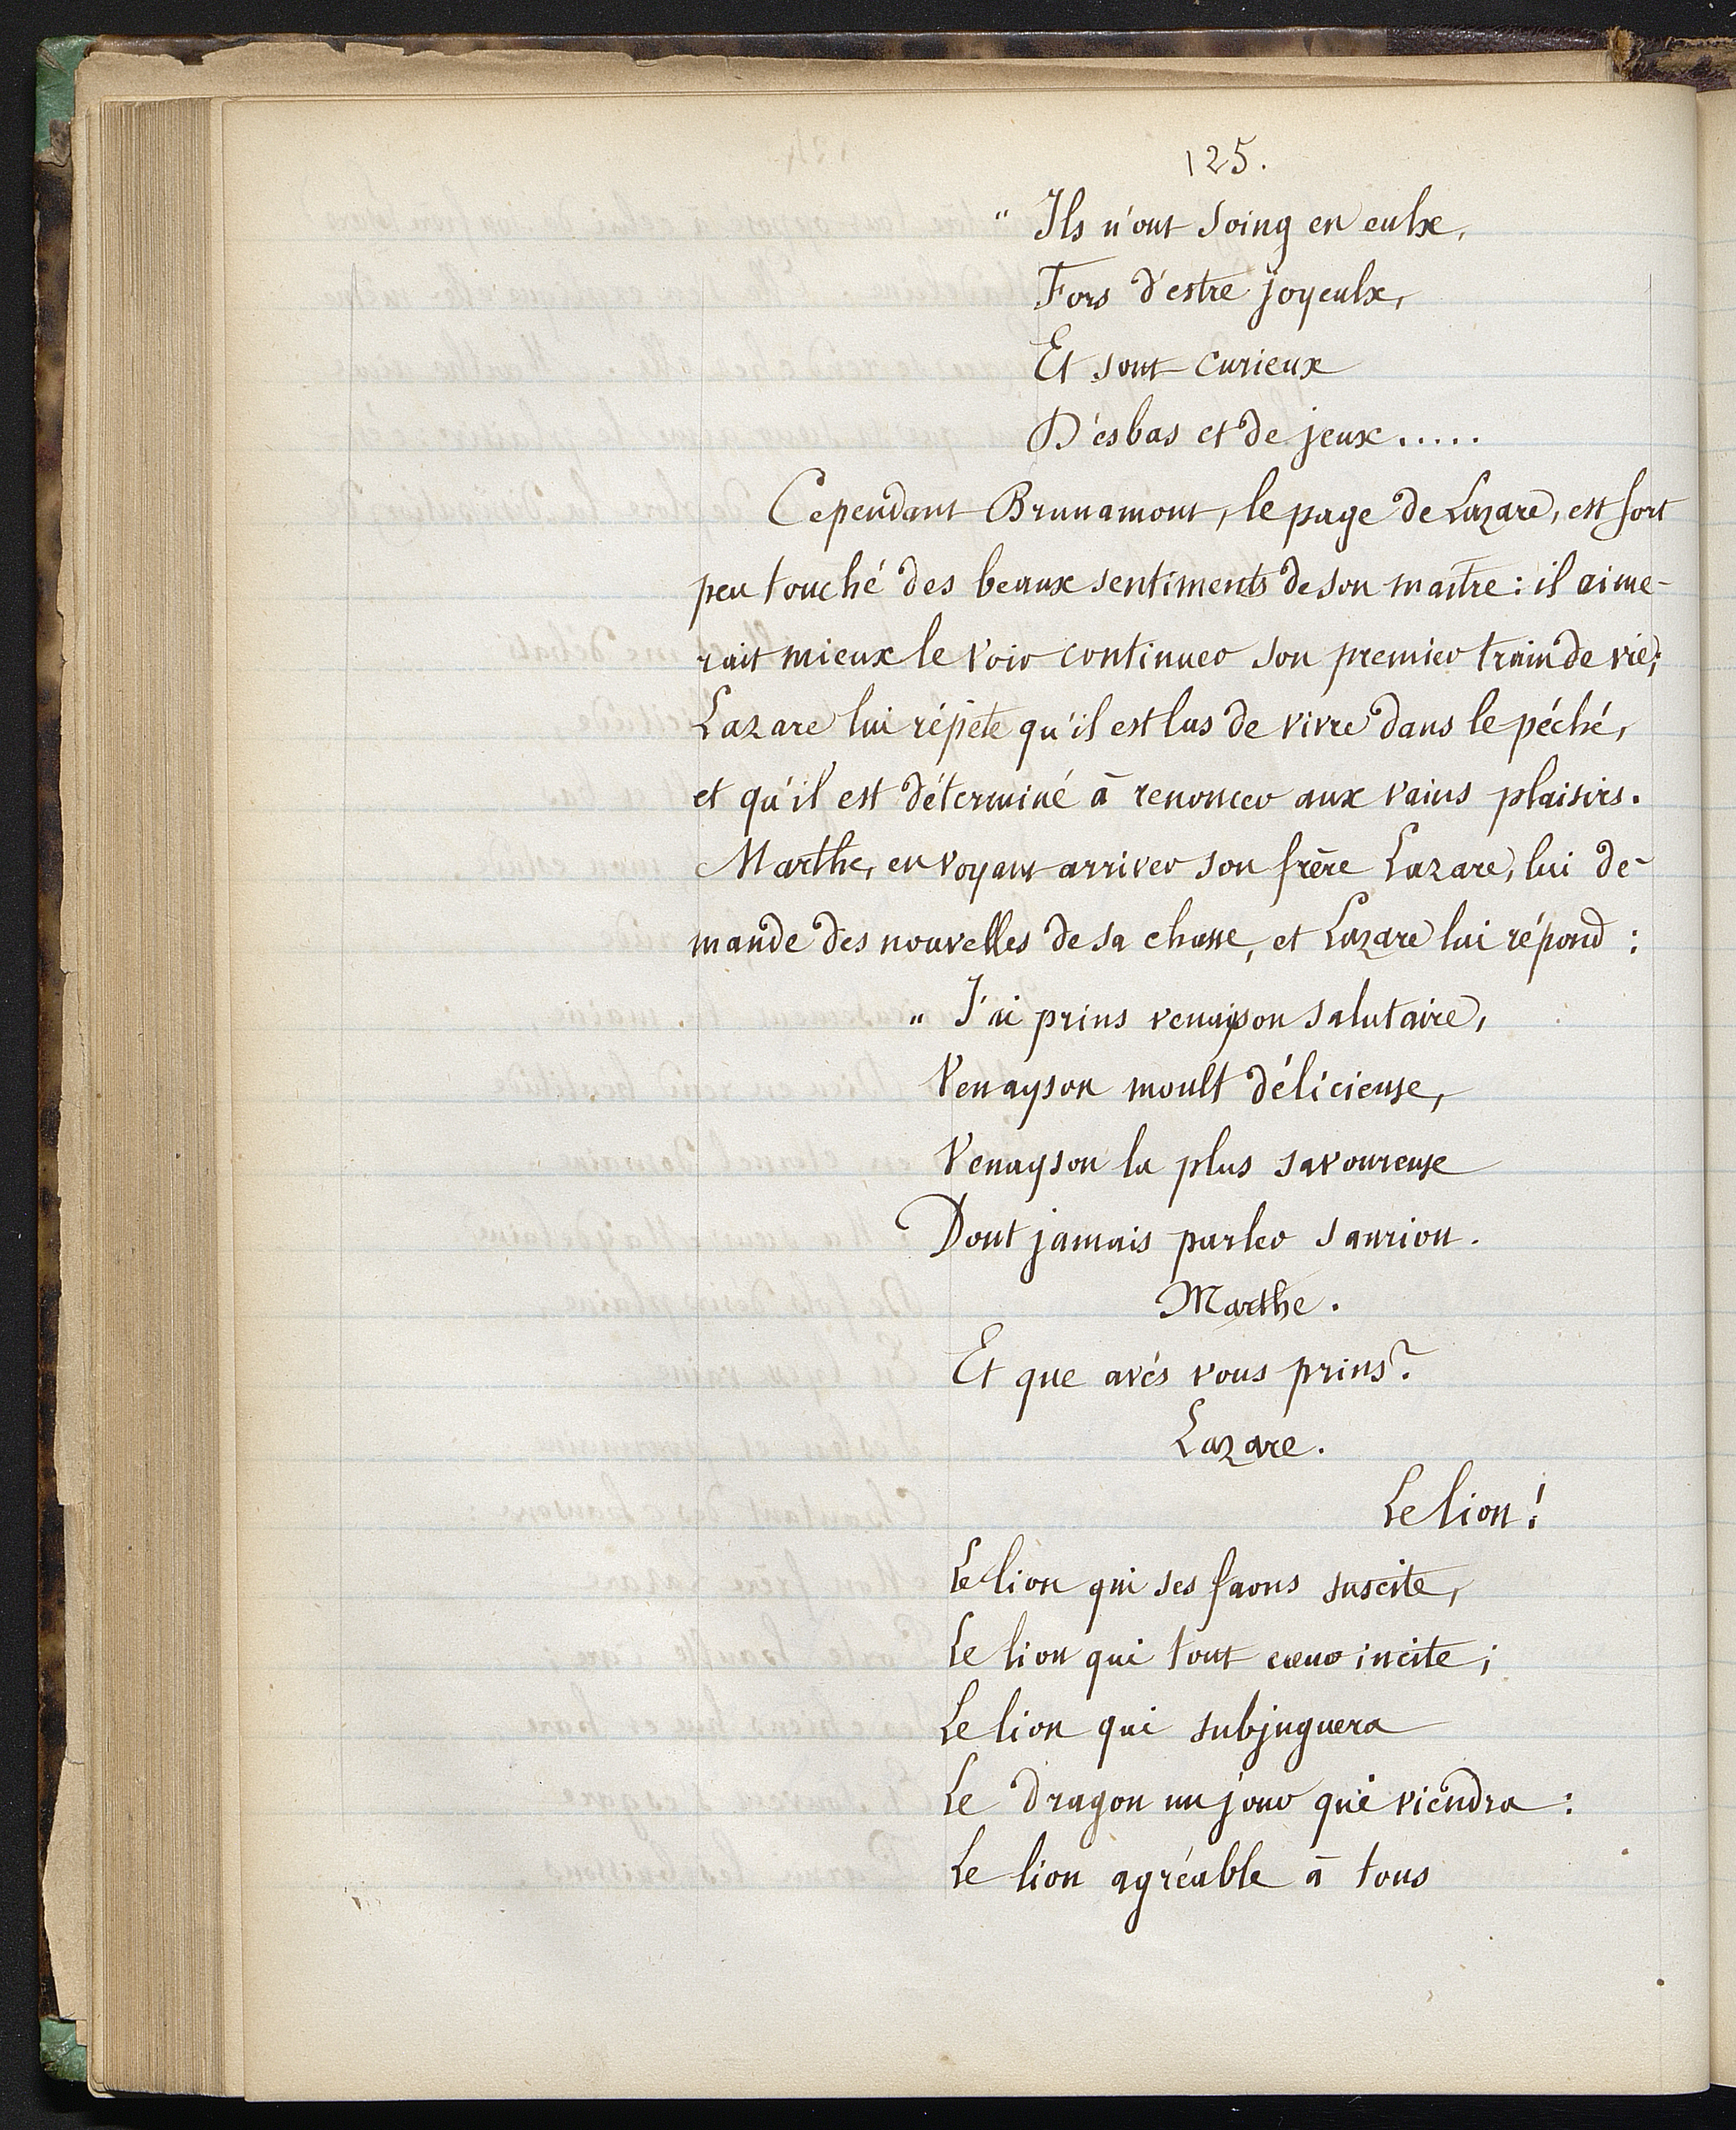 125.
" Ils n'ont soing en eulx,
Fors d'estre joyeulx,
Et sont curieux
D'esbas et de jeux.....
Cependant Brunamont, le page de Lazare, est fort
peu touché des beaux sentiments de son maître : il aime-
rait mieux le voir continuer son premier train de vie;
Lazare lui répète qu'il est las de vivre dans le péché,
et qu'il est déterminé à renoncer aux vains plaisirs.
Marthe, en voyant arriver son frère Lazare, lui de-
mande des nouvelles de sa chasse, et Lazare lui répond :
" J'ai prins venayson salutaire,
Venayson moult délicieuse,
Venayson la plus savoureuse
Dont jamais parler saurion.
Marthe.
Et que avés vous prins?
Lazare.
Le lion!
Le lion qui ses faons suscite,
Le lion qui tout cœur incite;
Le lion qui subjuguera
Le dragon un jour qui viendra :
Le lion agréable à tous